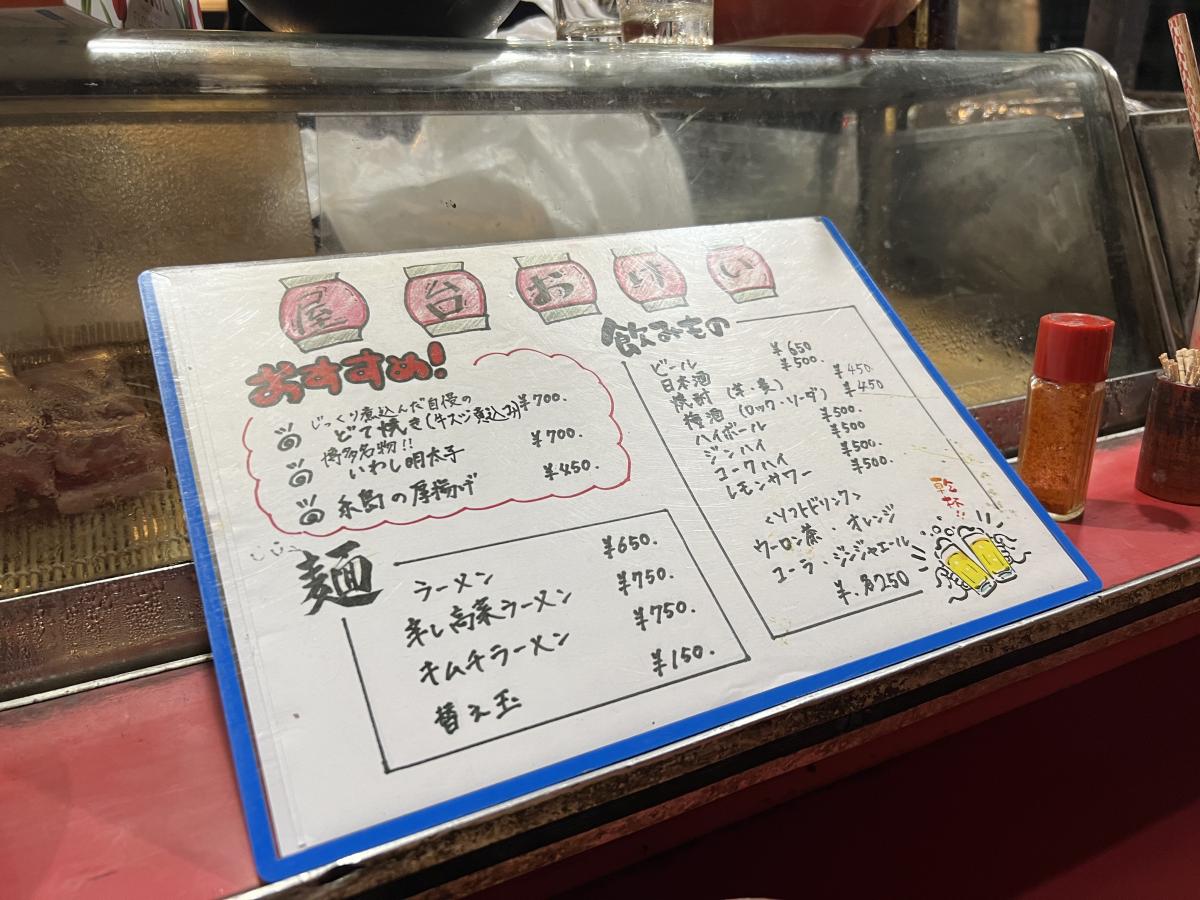 屋台おけい
おすすめ!
じっくり煮込んだ自慢の
どて焼き(牛スジ煮込み) ¥700.
博多名物!!
いわし明太子 ¥700.
糸島の厚揚げ ¥450.
麺
ラーメン ¥650.
辛し高菜ラーメン ¥750.
キムチラーメン ¥750.
替え玉 ¥150.
飲みもの
ビール ¥650
日本酒 ¥500.
焼酎 (芋・麦) ¥450
梅酒 (ロック・ソーダ) ¥450
ハイボール ¥500.
ジンハイ ¥500
コークハイ ¥500.
レモンサワー ¥500.
<ソフトドリンク>
ウーロン茶・オレンジ
コーラ・ジンジャエール
¥.各250
乾杯!!